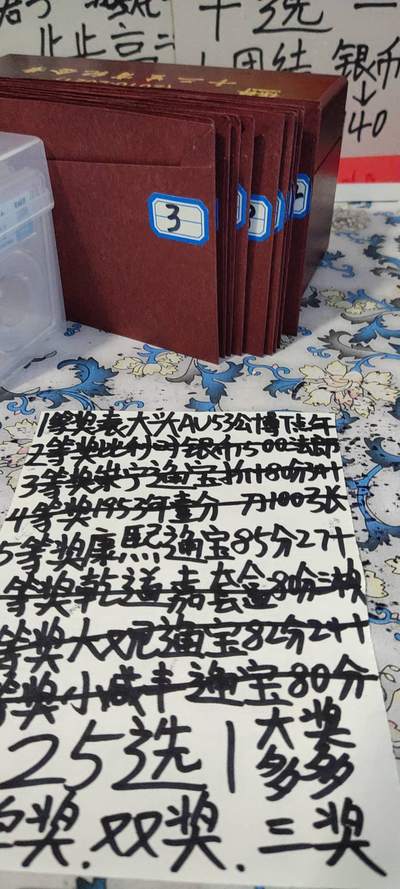 止止高
十选一
团结 银币
↓
40
3
1等奖袁大头AU53公博
2等奖比利时银币500法郎
3等奖崇宁通宝折十80分
4等奖1953年壹分一刀100张
5等奖康熙通宝85分2个
等奖乾道嘉套盒80分三枚
等奖大观通宝82分2个
等奖小咸丰通宝80分
25选1 大奖多多
奖.双奖.三奖